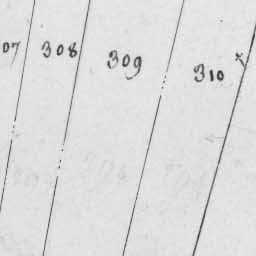 07 308 309 310